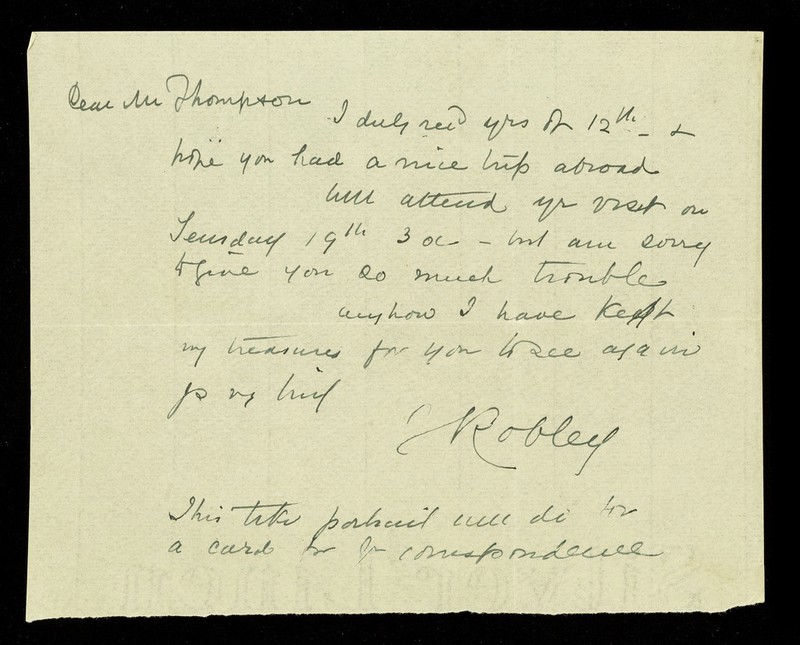 Dear Mr Thompson
I duly recd yrs of 12th - &
hope you had a nice trip abroad
Will attend yr visit on
Teusday 19th 3 oc - but am sorry
to give you so much trouble
anyhow I have kept
my treasures for you to see again
yrs vy truly
Robley
This portrait will do for
a card for yr correspondence